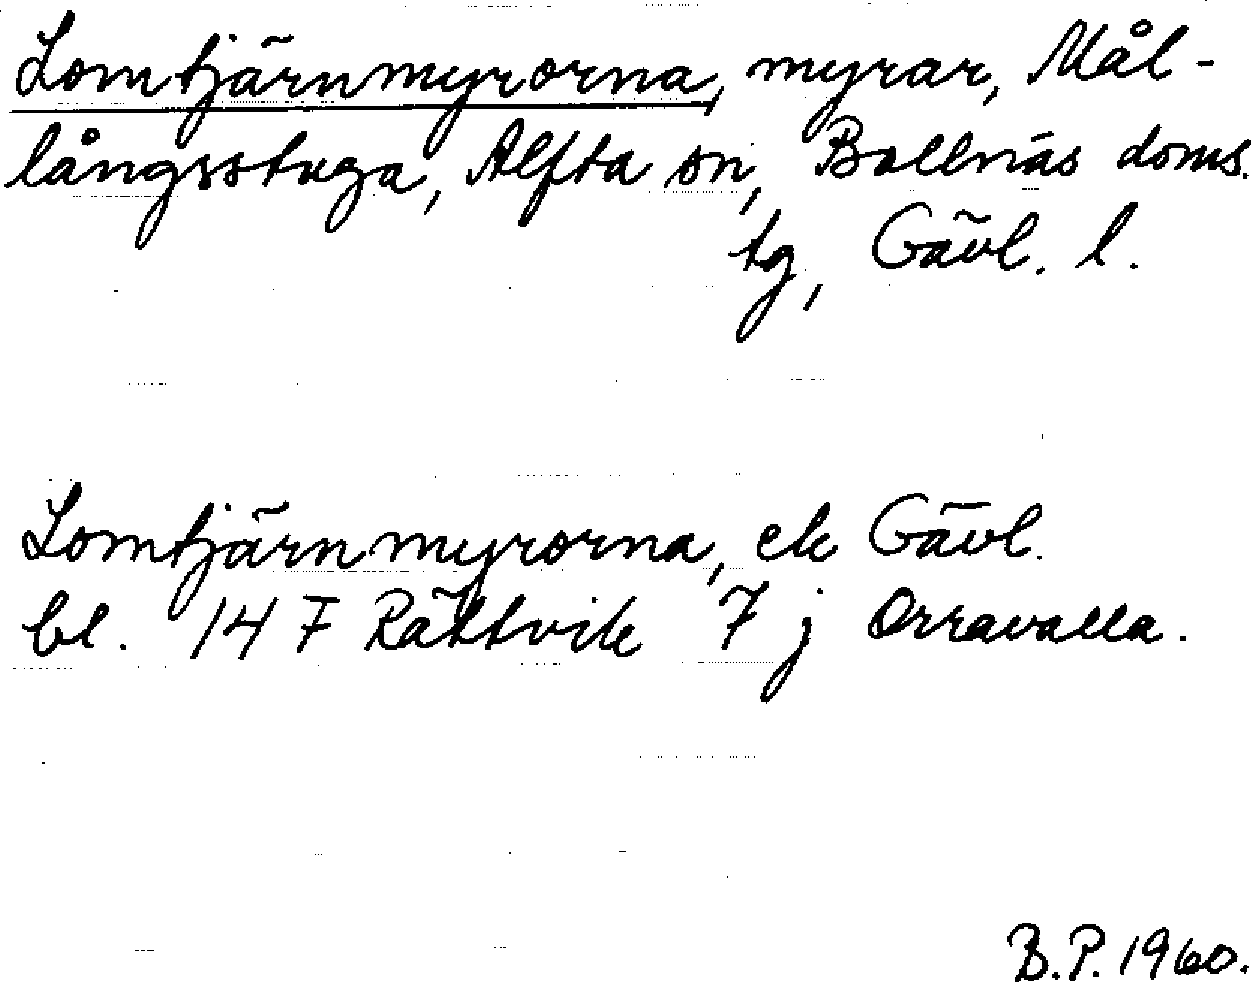 Lomtjärnmyrorna, myrar, Mål-
långsstuga, Alfta sn, Bollnäs doms.
tg, Gävl. l.
Lomtjärnmyrorna, ek Gävl.
bl. 14 F Rättvik 7 j Orravalla.
B.P. 1960.